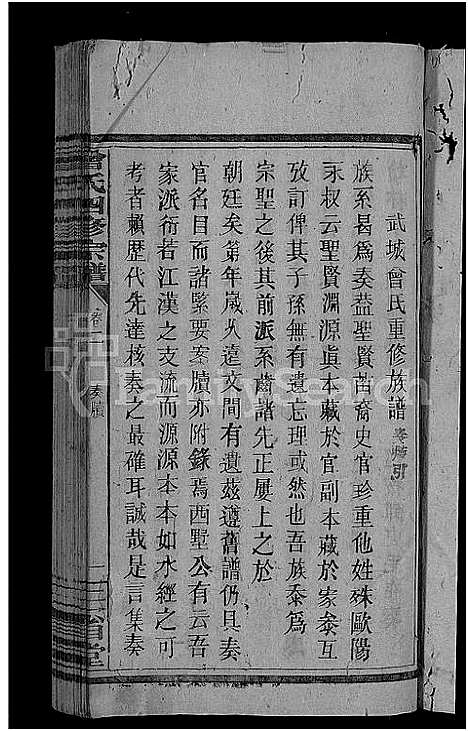 武城曾氏重修族譜 奏牘引
族系曷爲奏蓋聖賢苗裔史官珍重他姓殊歐陽
永叔云聖賢淵源眞本藏於官副本藏於家叅互
攷訂俾其子孫無有遺忘理或然也吾族忝爲
宗聖之後其前派系薦諸先正屢上之於
朝廷矣第年嵗久遠文間有遺茲遵舊譜仍具奏
官名目而諸緊要案牘亦附錄焉西墅公有云吾
家派衍若江漢之支流而源源本本如水經之可
考者賴歷代先達核奏之最確耳誠哉是言集奏
曾氏四修宗譜
卷二
奏牘
三省堂
FamilySearch